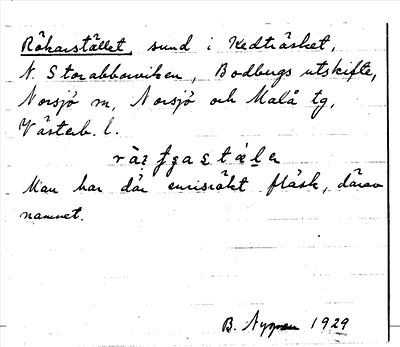 Rökarstället, sund i Kedträsket,
N. Storabborviken, Bodbergs utskifte,
Norsjö sn, Norsjö och Malå tg,
Västerb. l.
Man har där enrisrökt fläsk, därav
namnet.
B. Nygren 1929